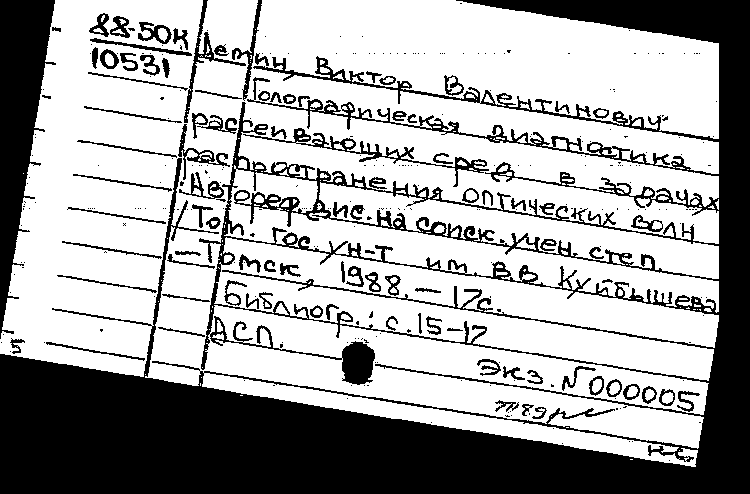 88-50К
10531
Демин, Виктор Валентинович
Голографическая диагностика
рассеивающих сред в задачах
распространения оптических волн
: Автореф. дис. на соиск. учен. степ.
/ Том. гос. ун-т им. В.В. Куйбышева
.—Томск, 1988.—17с.
Библиогр.: с.15-17
ДСП.
Экз. N 000005
5
н-с